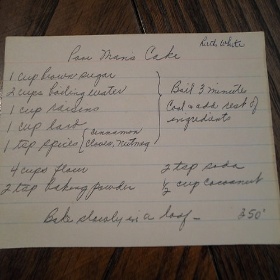 Poor Mans Cake
Ruth White
1 cup brown sugar
2 cups boiling water
1 cup raisins
1 cup lard
1 tsp spices { cinnamon
cloves, nutmeg
Boil 3 minutes
Cool & add rest of
ingredients
4 cups flour
2 tsp soda
2 tsp baking powder
1/2 cup cocoanut
Bake slowly in a loaf - 350°